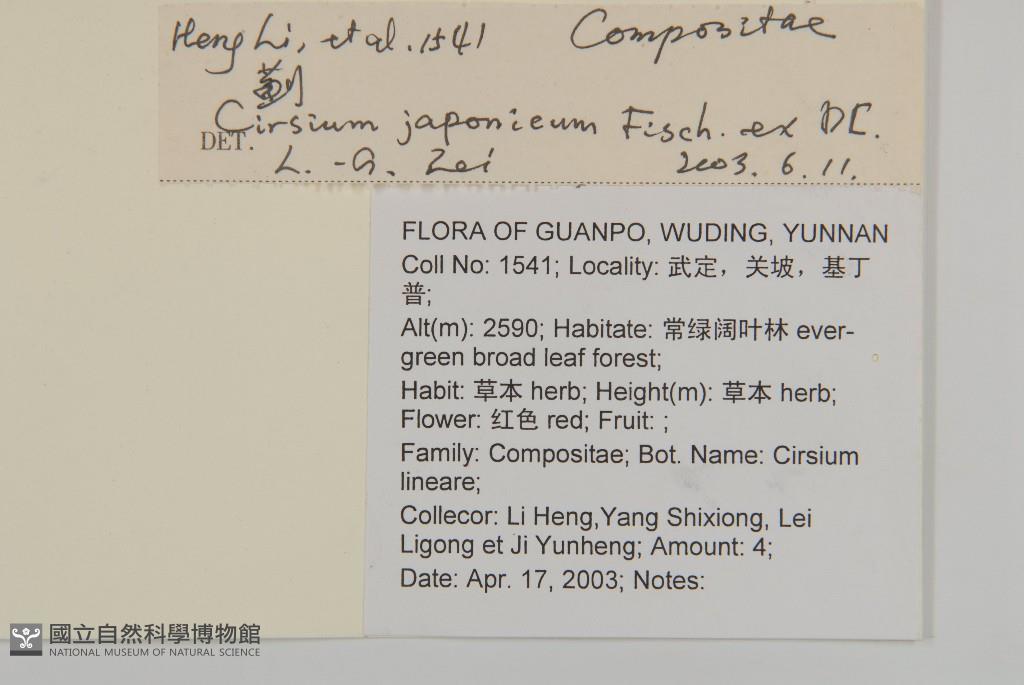 Heng Li, et al. 1541 Compositae
蓟
Cirsium japonicum Fisch. ex DC.
DET. L. -G. Lei 2003. 6. 11.
FLORA OF GUANPO, WUDING, YUNNAN
Coll No: 1541; Locality: 武定，关坡，基丁
普;
Alt(m): 2590; Habitate: 常绿阔叶林 ever-
green broad leaf forest;
Habit: 草本 herb; Height(m): 草本 herb;
Flower: 红色 red; Fruit: ;
Family: Compositae; Bot. Name: Cirsium
lineare;
Collecor: Li Heng,Yang Shixiong, Lei
Ligong et Ji Yunheng; Amount: 4;
Date: Apr. 17, 2003; Notes:
國立自然科學博物館
NATIONAL MUSEUM OF NATURAL SCIENCE